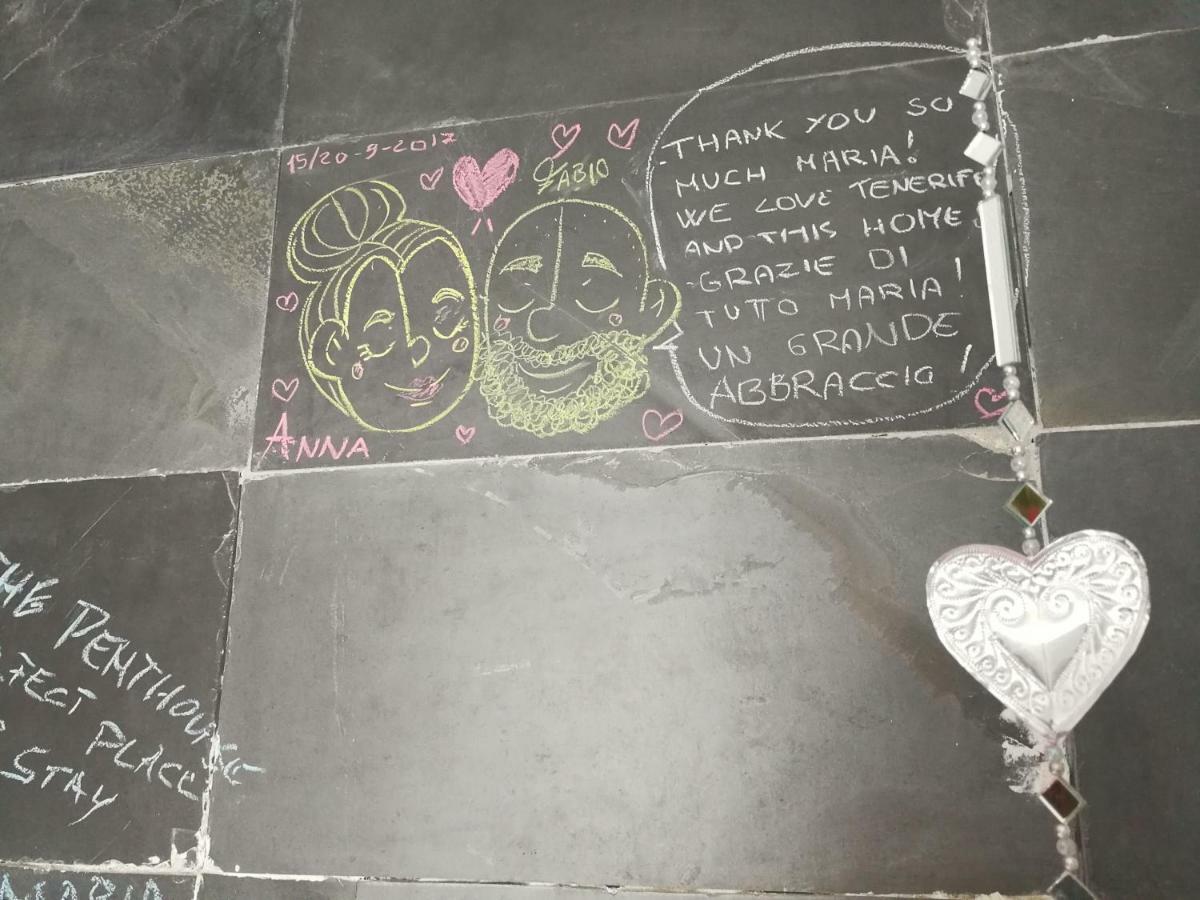 15/20-9-2017
FABIO
ANNA
THANK YOU SO
MUCH MARIA!
WE LOVE TENERIFE
AND THIS HOME
GRAZIE DI
TUTTO MARIA!
UN GRANDE
ABBRACCIO!
THE PENTHOUSE
PLACE
STAY